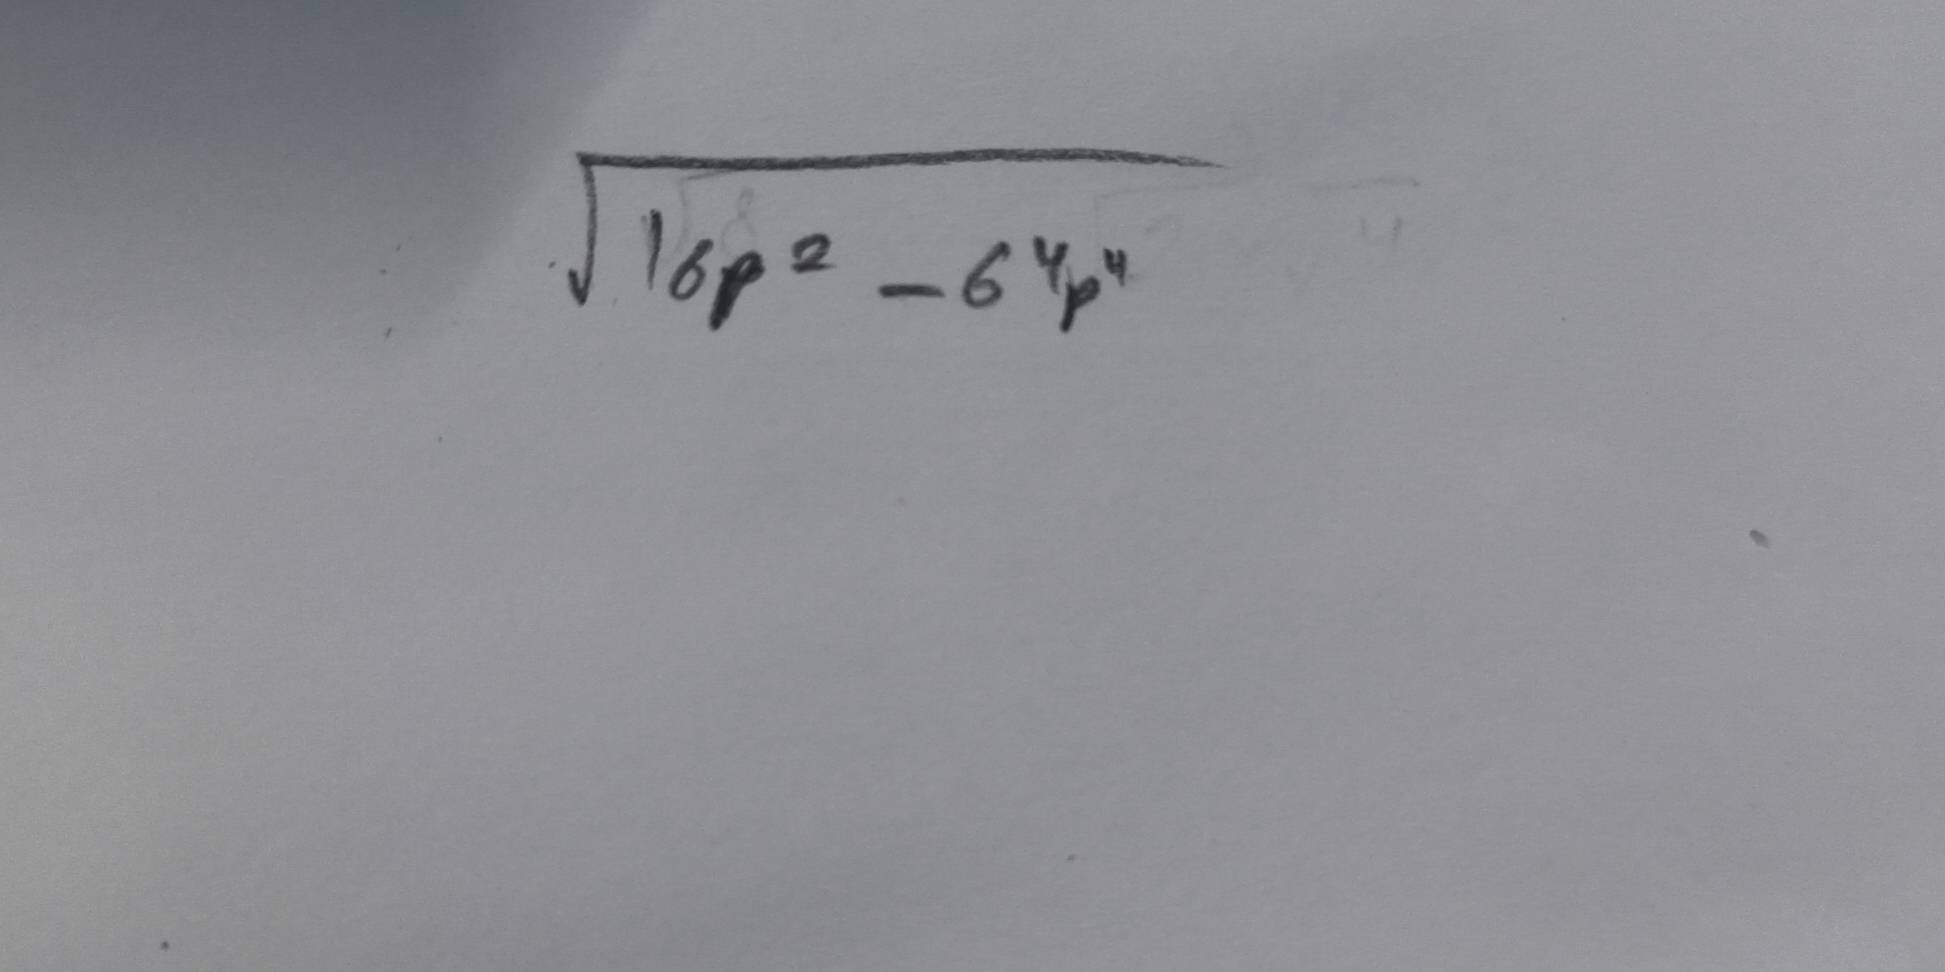 √16p² - 6⁴p⁴